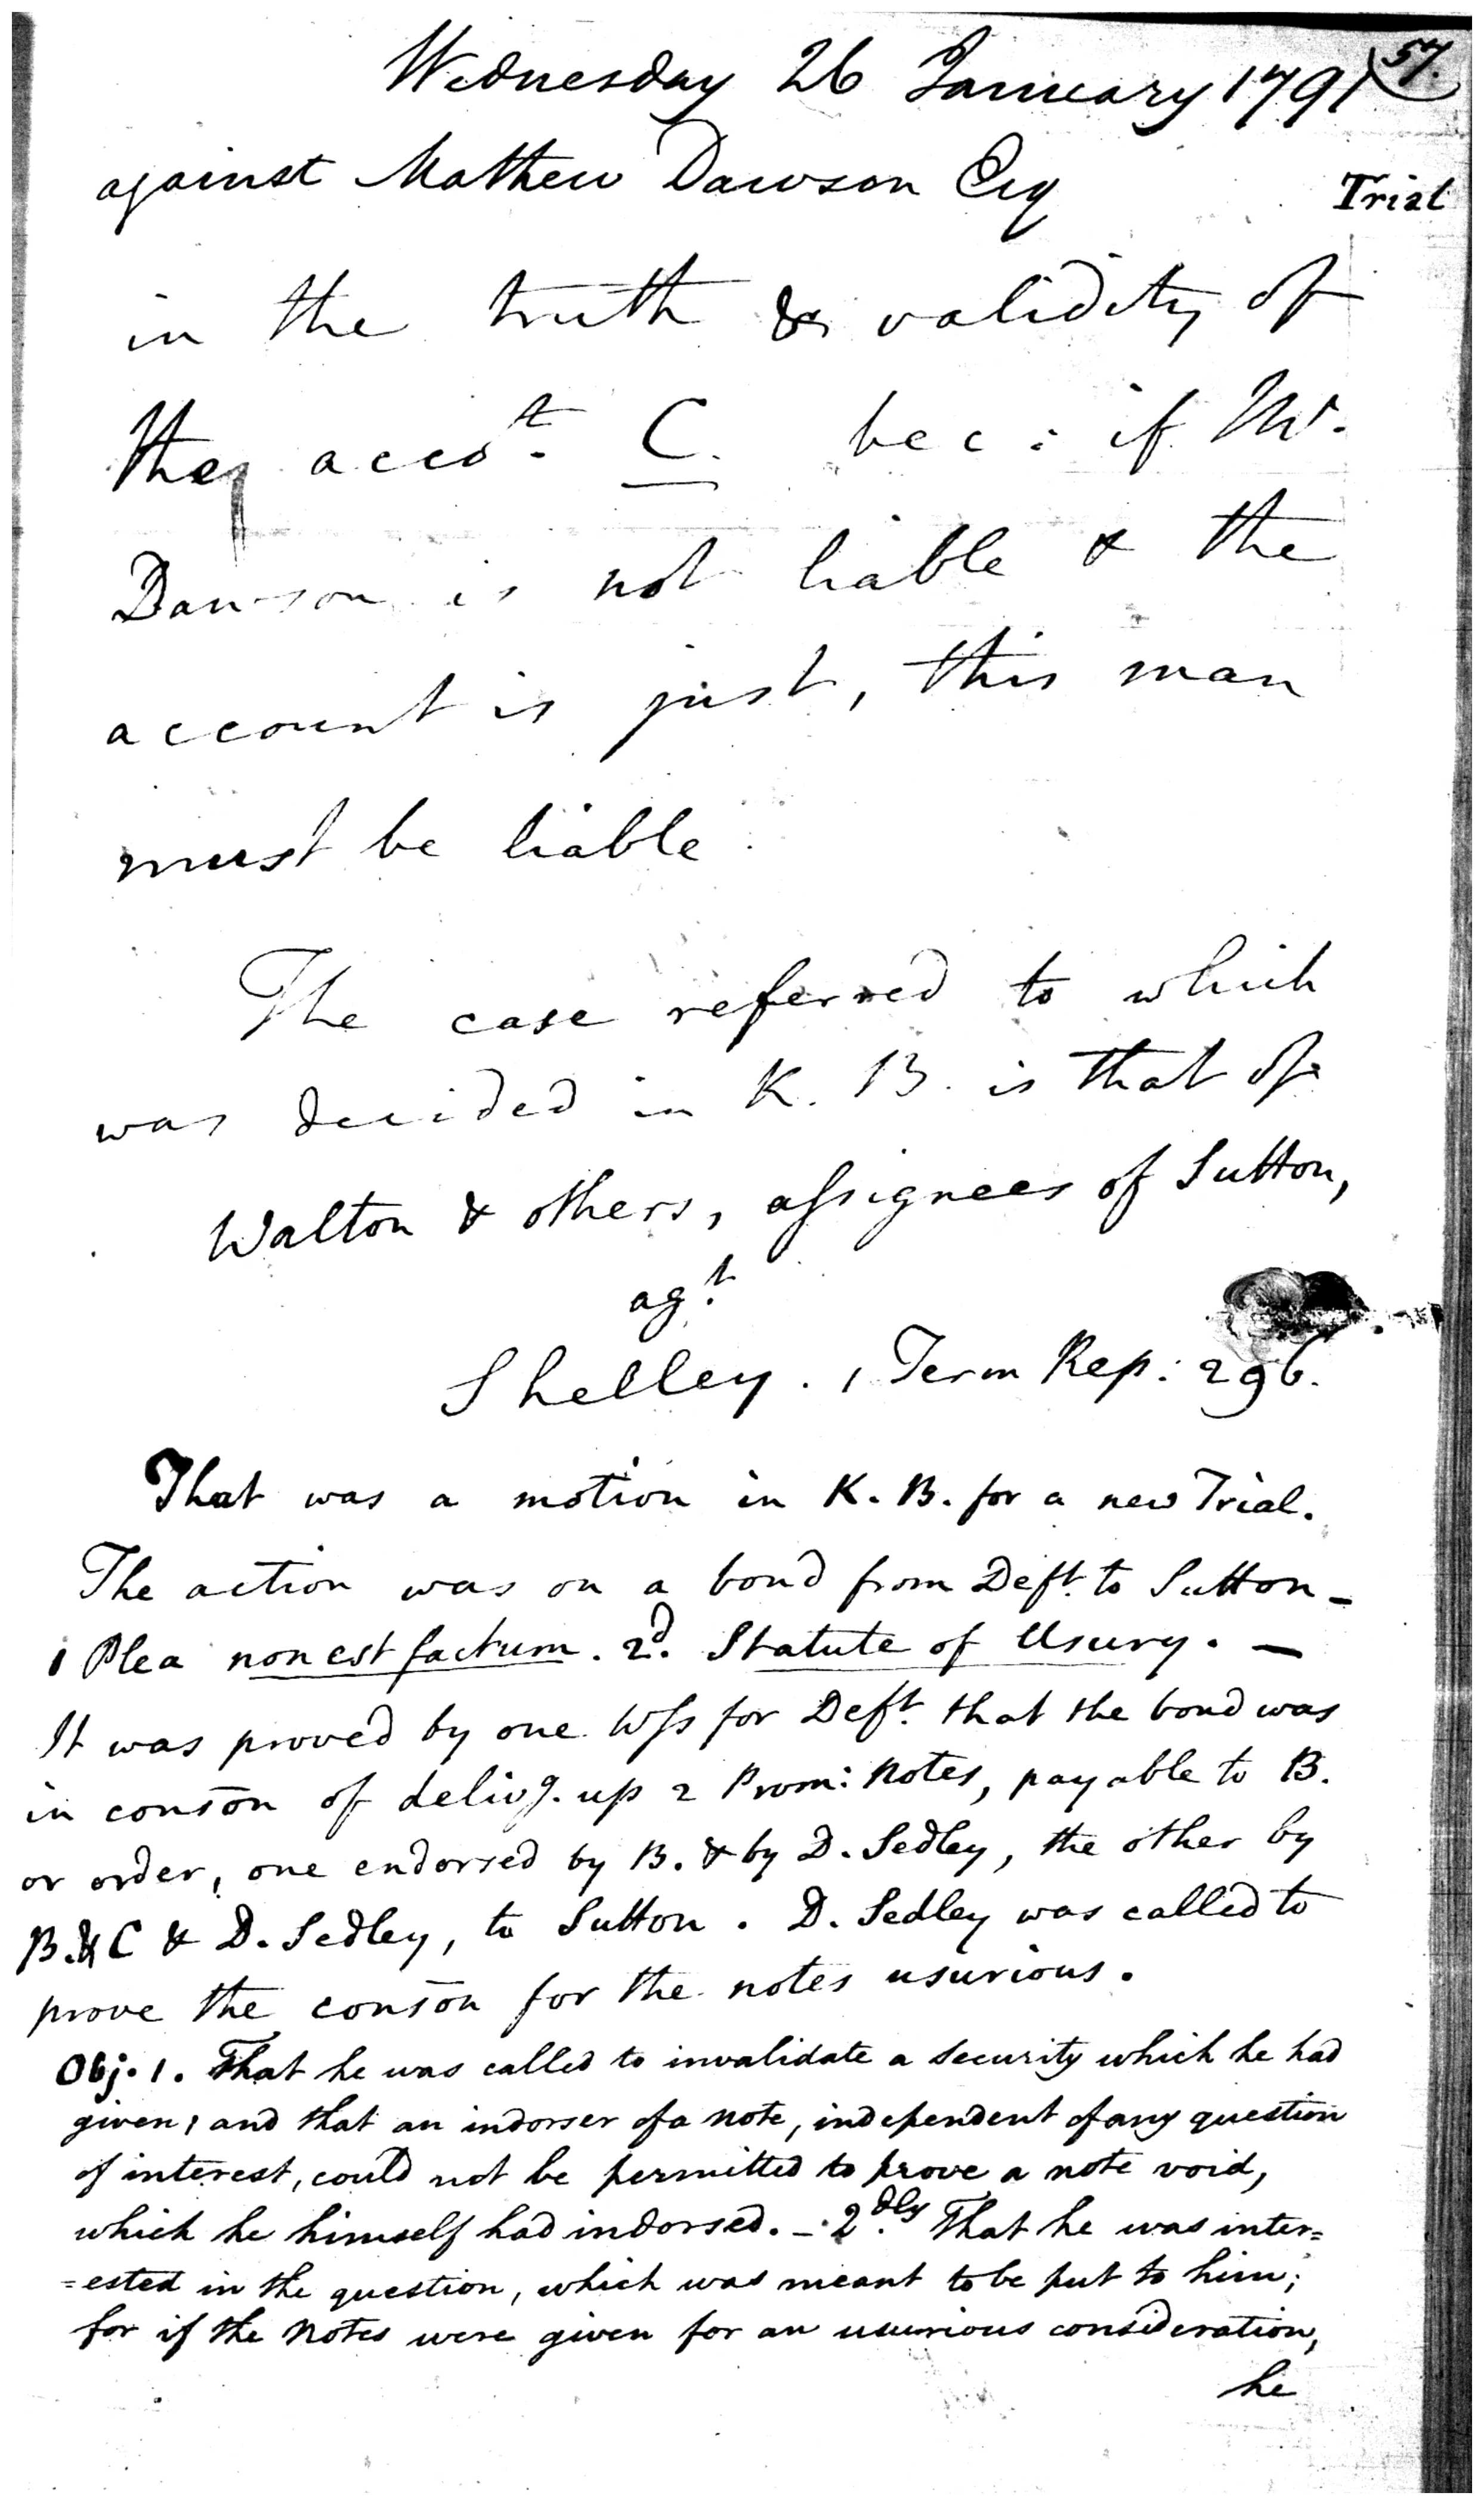 Wednesday 26 January 1791 57.
against Mathew Dawson Esq
Trial
in the truth & validity of
the acco.t C. bec: if Mr.
Dawson is not liable & the
account is just, this man
must be liable.
The case referred to which
was decided in K. B. is that of
Walton & others, assignees of Sutton,
ag.t
Shelley. 1 Term Rep: 296.
That was a motion in K. B. for a new Trial.
The action was on a bond from Deft. to Sutton –
1 Plea non est factum. 2.d Statute of Usury. –
It was proved by one Wss for Deft. that the bond was
in consōn of delivg. up 2 Prom: Notes, payable to B.
or order, one endorsed by B. & by D. Sedley, the other by
B. & C & D. Sedley, to Sutton. D. Sedley was called to
prove the consōn for the notes usurious.
Obj. 1. That he was called to invalidate a security which he had
given, and that an indorser of a note, independent of any question
of interest, could not be permitted to prove a note void,
which he himself had indorsed. – 2.dly That he was inter=
=ested in the question, which was meant to be put to him;
for if the notes were given for an usurious consideration,
he